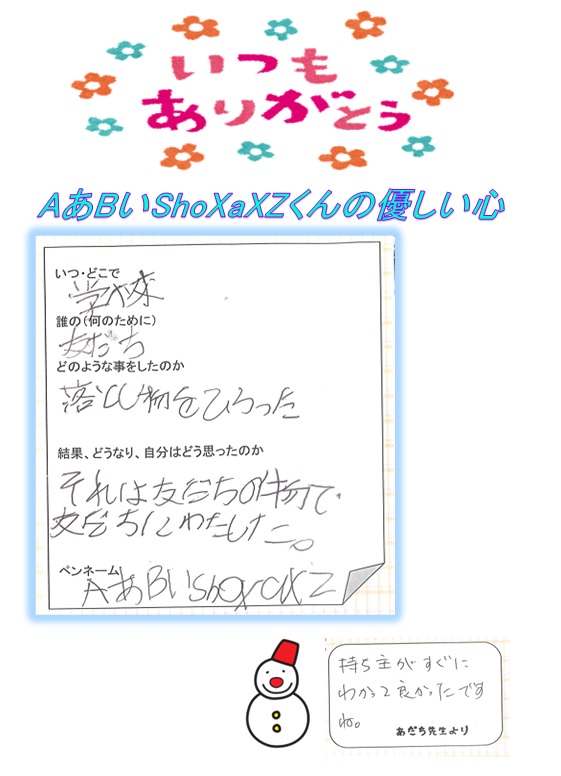 いつも
ありがとう
AあBいShoXaXZくんの優しい心
いつ・どこで
学校
誰の(何のために)
友だち
どのような事をしたのか
落とし物をひろった
結果、どうなり、自分はどう思ったのか
それは友だちの物で、
友だちにわたした。
ペンネーム
AあBいShoXaXZ
持ち主がすぐに
わかって良かったです
ね。
あだち先生より